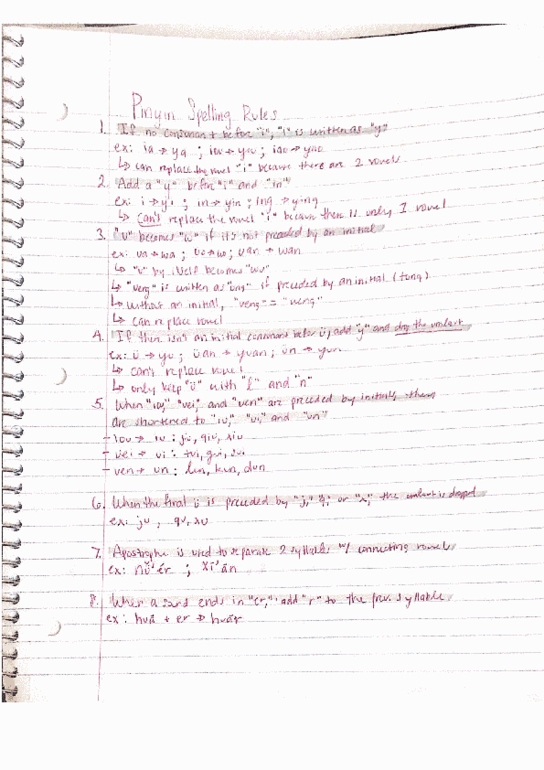 Pinyin Spelling Rules
1. If no consonant before "i", "i" is written as "y"
ex: ia → ya ; iou → you ; iao → yao
↳ can replace the vowel "i" because there are 2 vowels
2. Add a "y" before "i" and "in"
ex: i → yi ; in → yin ; ing → ying
↳ can't replace the vowel "i" because there is only 1 vowel
3. "u" becomes "w" if it's not preceded by an initial
ex: ua → wa ; uo → wo ; uan → wan
↳ "u" by itself becomes "wu"
↳ "ueng" is written as "ong" if preceded by an initial (tong)
↳ without an initial, "ueng" = "weng"
↳ can replace vowel
4. If there isn't an initial consonant before ü, add "y" and drop the umlaut
ex: ü → yu ; üan → yuan ; ün → yun
↳ can't replace vowel
↳ only keep "ü" with "l" and "n"
5. When "iou," "uei," and "uen" are preceded by initials, them
are shortened to "iu," "ui," and "un"
- iou → iu : jiu, qiu, xiu
- uei → ui : tui, gui,
- uen → un : lun, kun, dun
6. When the final ü is preceded by "j," "q," or "x," the umlaut is dropped
ex: ju , qu, xu
7. Apostrophe is used to separate 2 syllables w/ connecting vowels
ex: nǚ'ér ; Xī'ān
8. When a word ends in "er," add "r" to the prev. syllable
ex: huā + er → huār